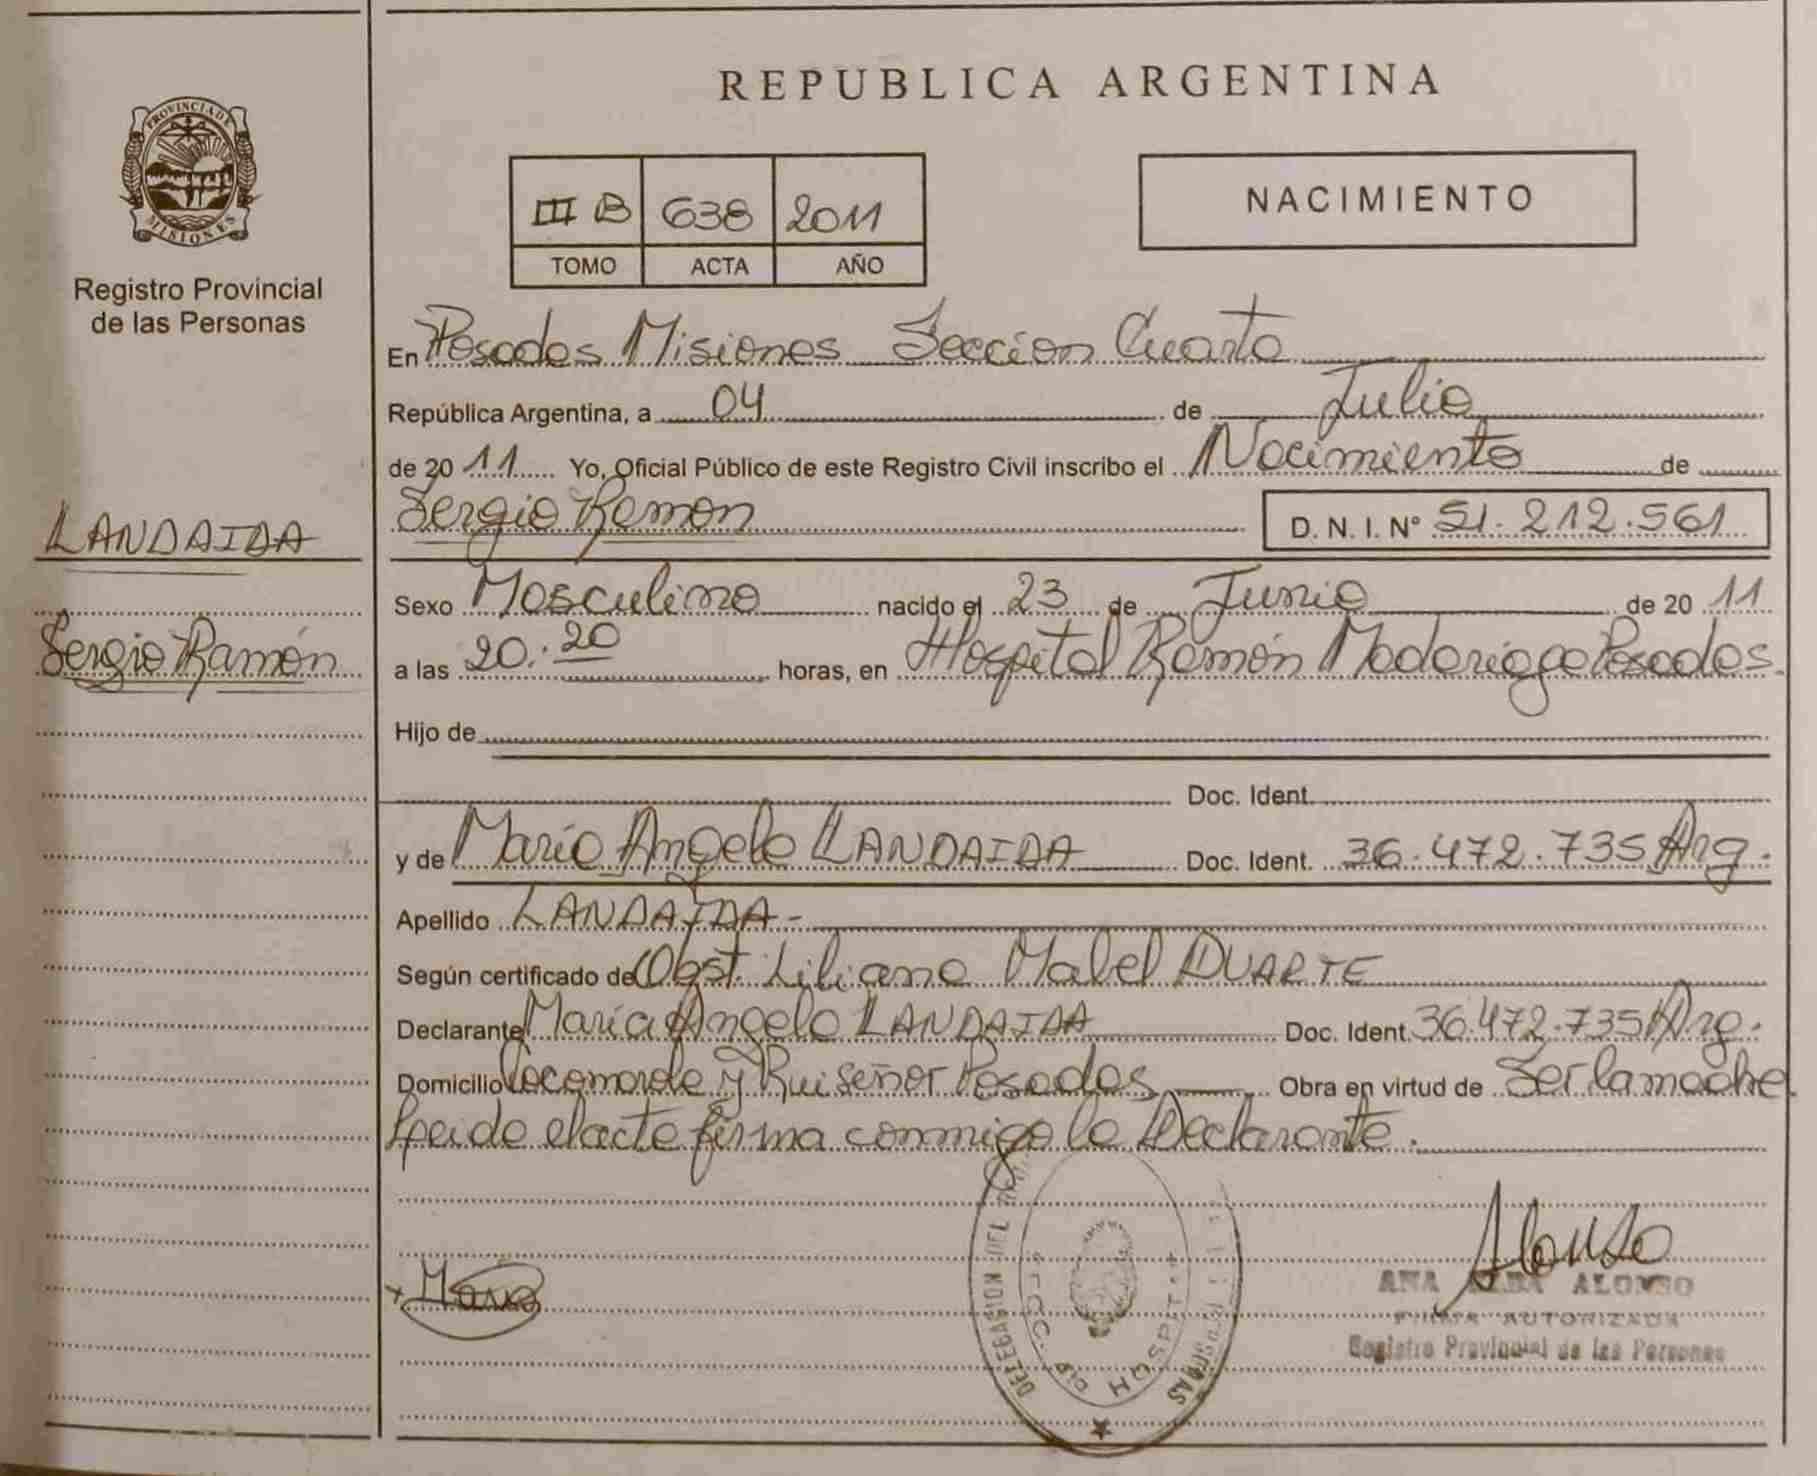 PROVINCIA DE
MISIONES
Registro Provincial
de las Personas
LANDAIDA
Sergio Ramón
REPUBLICA ARGENTINA
III B 638 2011
TOMO ACTA AÑO
NACIMIENTO
En Posadas Misiones Seccion Cuarta
República Argentina, a 04 de Julio
de 2011 Yo, Oficial Público de este Registro Civil inscribo el Nacimiento de
Sergio Ramon D. N. I. N° 51.212.561
Sexo Masculino nacido el 23 de Junio de 2011
a las 20:20 horas, en Hospital Ramón Madariaga Posadas.
Hijo de
Doc. Ident.
y de María Angela LANDAIDA Doc. Ident. 36.472.735 Arg.
Apellido LANDAIDA-
Según certificado de Obst. Liliana Mabel DUARTE
Declarante María Angela LANDAIDA Doc. Ident. 36.472.735 Arg.
Domicilio Cocomarola y Ruiseñor Posadas Obra en virtud de Ser la madre
Leida el acta firma conmigo la Declarante.
x María
DELEGACION DEL
SECC. 4
HOSPITAL
Alonso
ANA ALBA ALONSO
FIRMA AUTORIZADA
Registro Provincial de las Personas